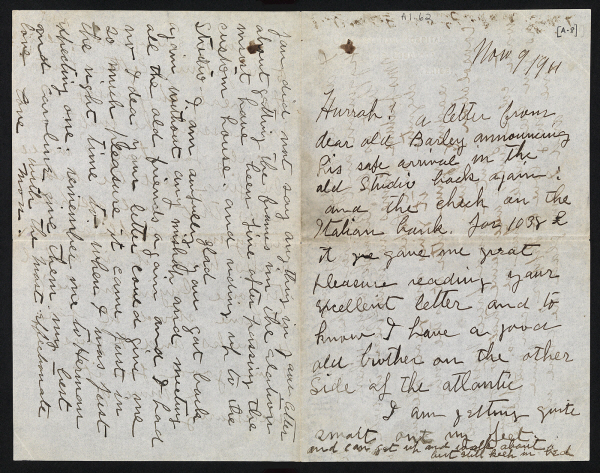 A1-62
[A-8]
Nov 9 1911
Hurrah! a letter from
dear old Bailey announcing
his safe arrival in the
old Studio back again!
and the check on the
Italian bank. for 1038 £
it gave me great
pleasure reading your
excellent letter and to
know I have a good
old brother on the other
side of the atlantic
I am getting quite
smart on my feet
and can get up and walk about
but still keep in bed
You did not say anything in your letter
about getting the frames in the
must have been fine after passing the
custom house and riding up to the
Studio I am awfully glad you got back
again without any mishap and meeting
all the old friends again and I had
no I dear your letter could give me
so much pleasure it came just in
the right time to when I was just
expecting one. remember me to Hermann
and Caroline give them my best
love with the most affectionate